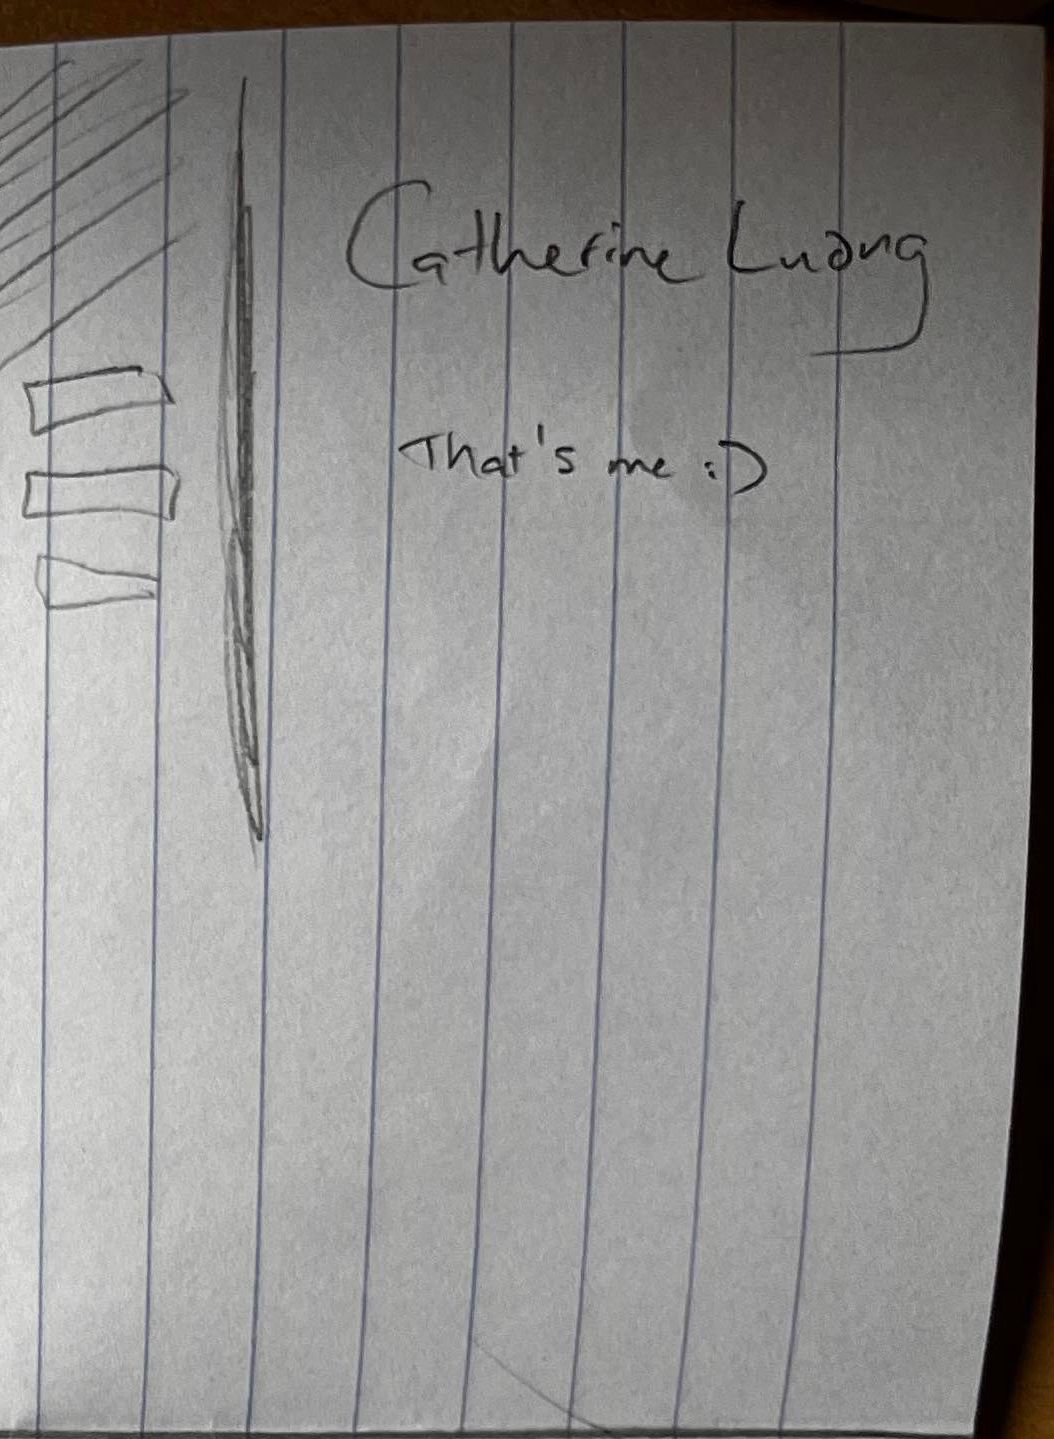 Catherine Luong
That's me :D